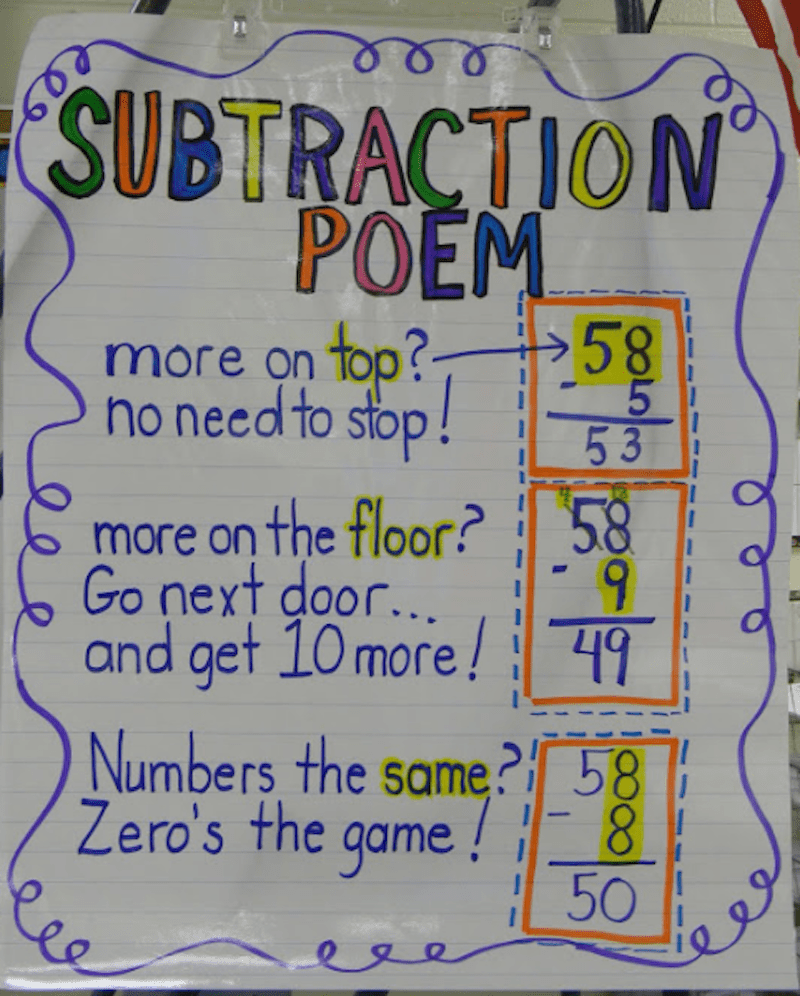 SUBTRACTION
POEM
more on top?
no need to stop!
58
- 5
53
more on the floor?
Go next door...
and get 10 more!
4 18
58
- 9
49
Numbers the same?
Zero's the game!
58
- 8
50